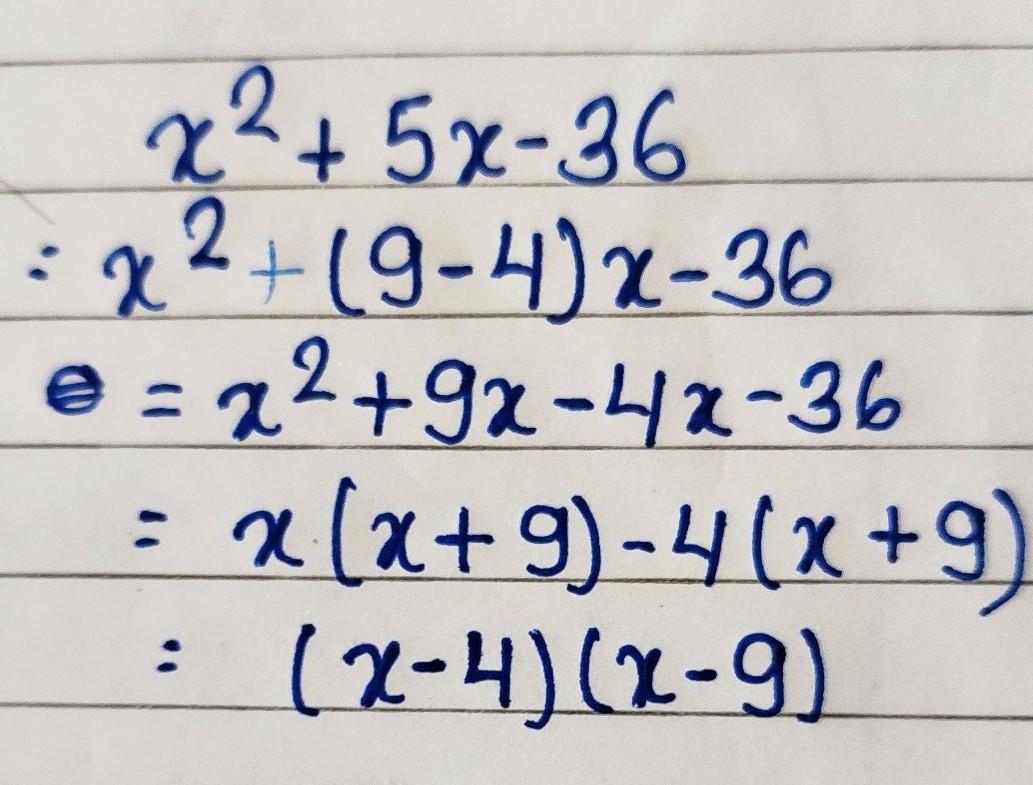 x² + 5x - 36
= x² + (9 - 4)x - 36
= x² + 9x - 4x - 36
= x(x + 9) - 4(x + 9)
= (x - 4)(x - 9)